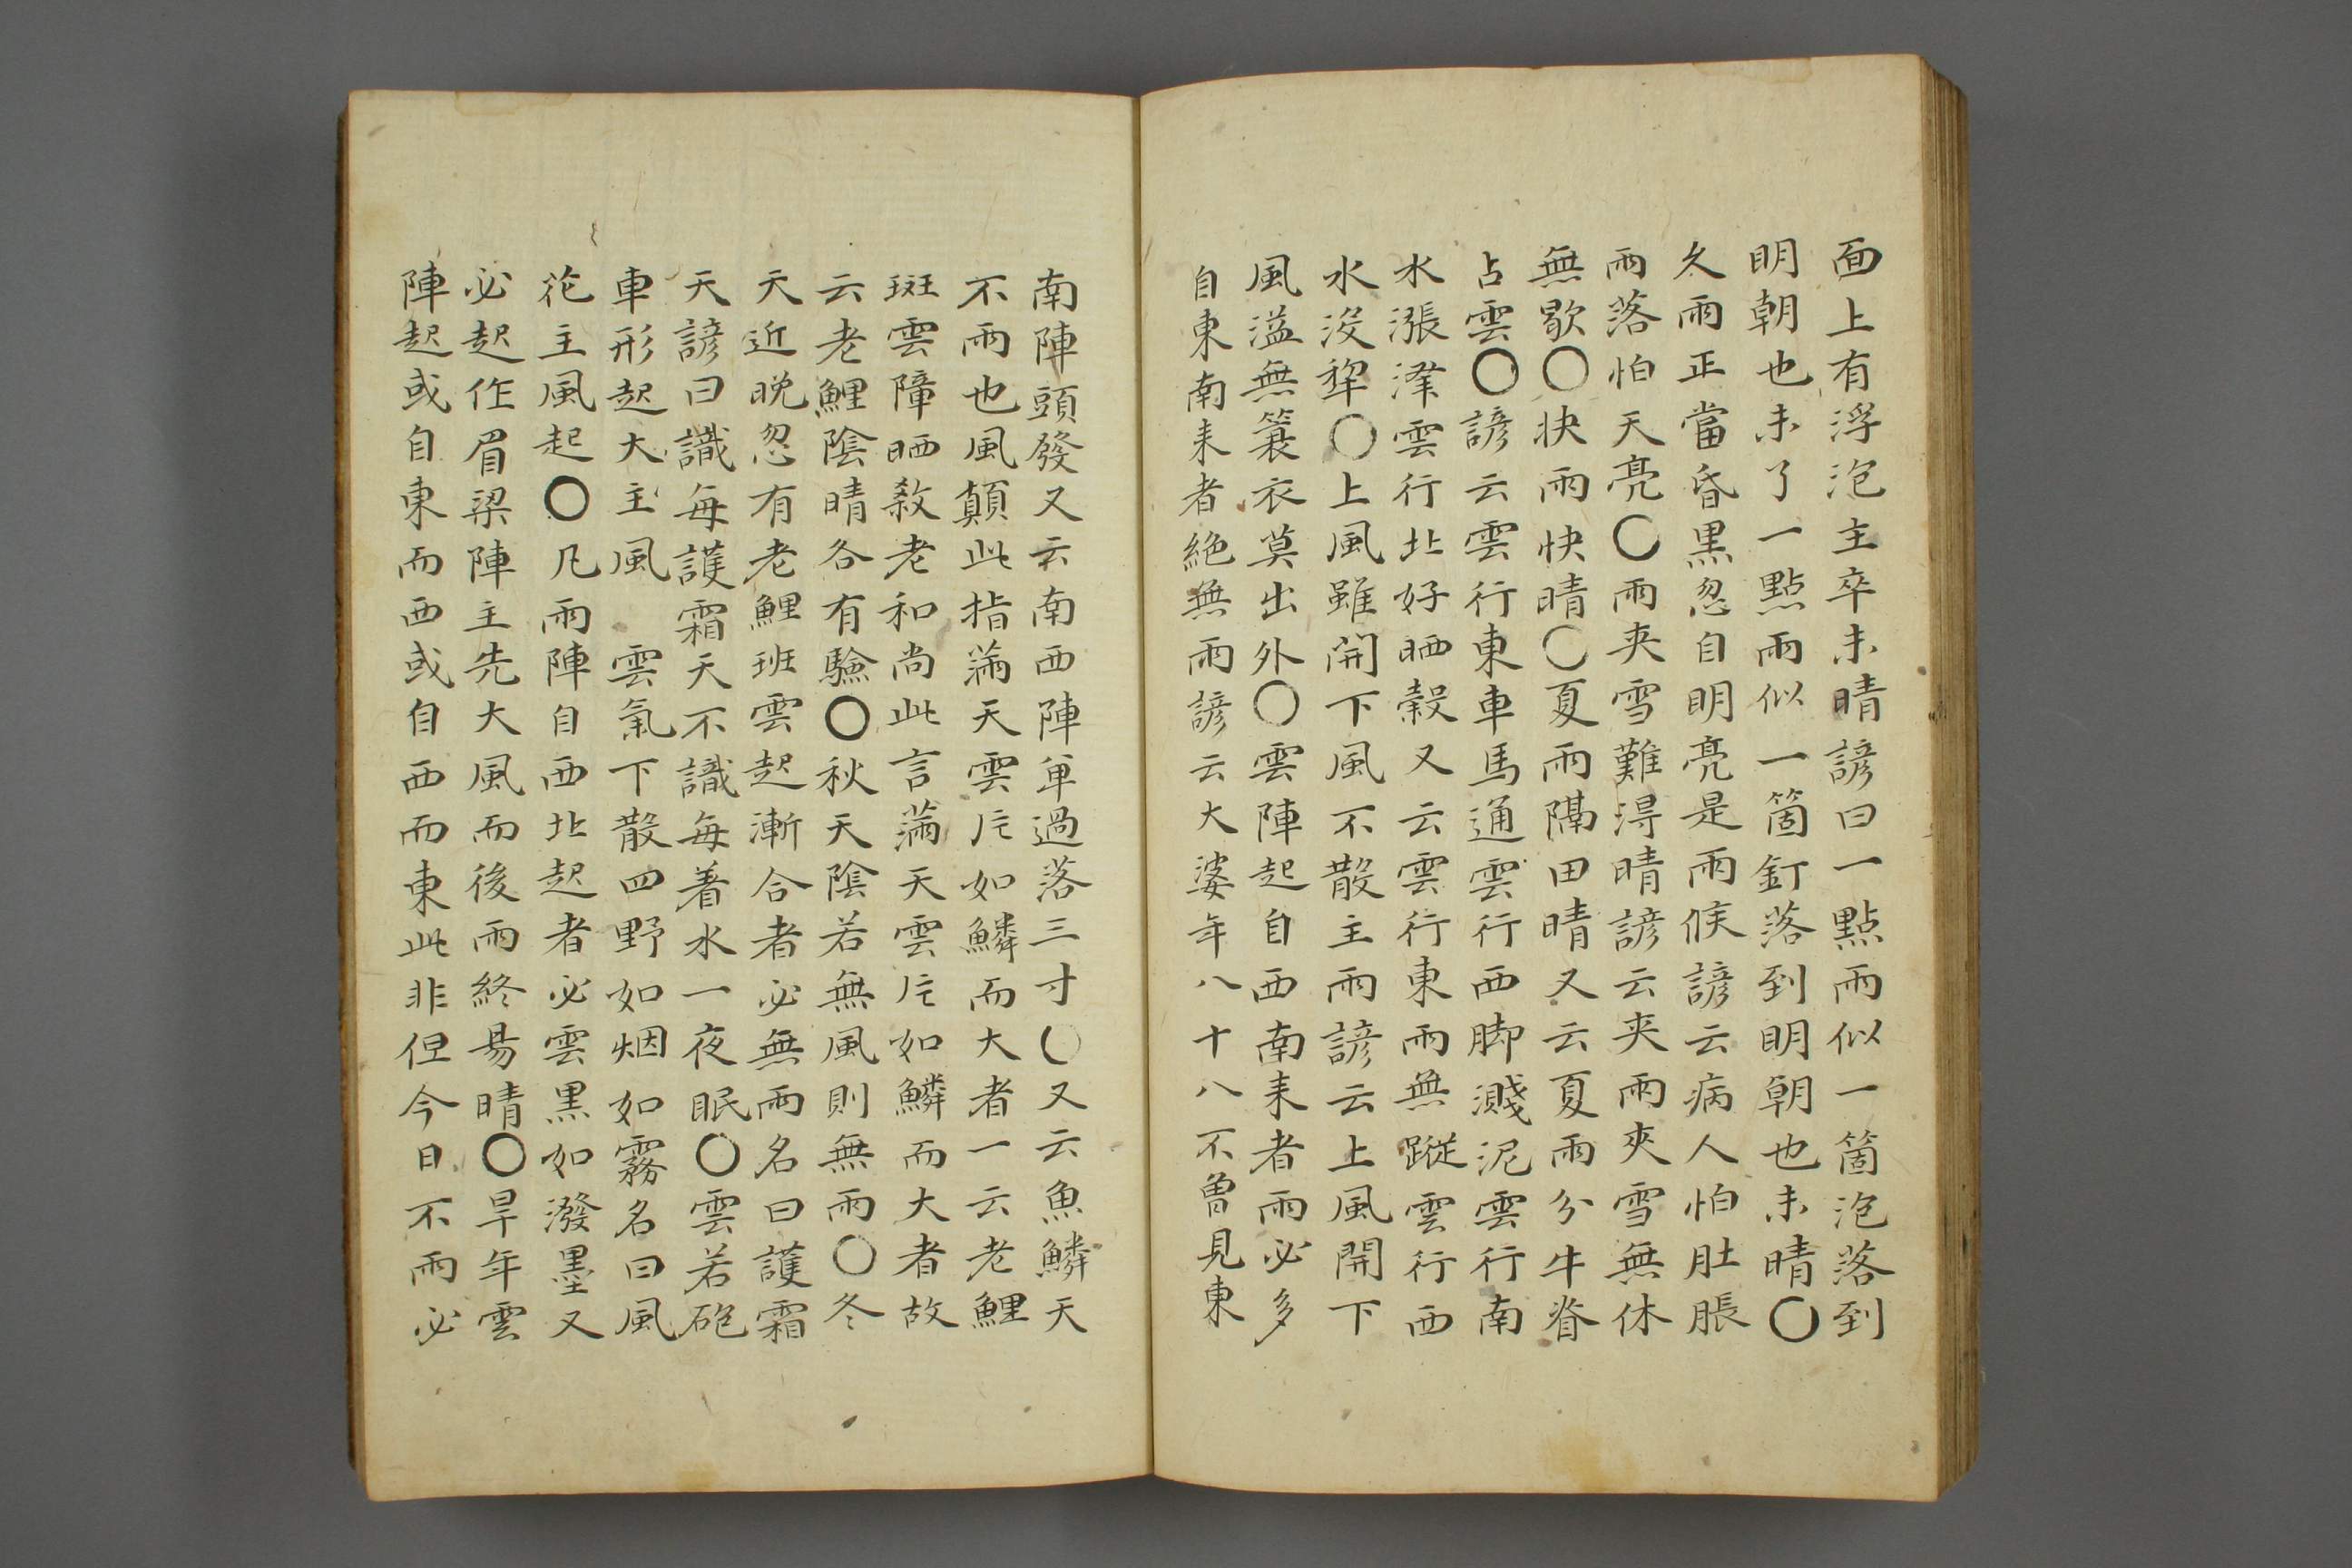 面上有浮泡主卒未晴諺曰一點雨似一箇泡落到
明朝也未了一點雨似一箇釘落到明朝也未晴〇
久雨正當昏黑忽自明亮是雨候諺云病人怕肚脹
雨落怕天亮〇雨夾雪難得晴諺云夾雨夾雪無休
無歇〇快雨快晴〇夏雨隔田晴又云夏雨分牛脊
占雲〇諺云雲行東車馬通雲行西脚濺泥雲行南
水漲潭雲行北好晒穀又云雲行東雨無蹤雲行西
水没犂〇上風雖開下風不散主雨諺云上風開下
風溢無簑衣莫出外〇雲陣起自西南来者雨必多
自東南来者絶無雨諺云大婆年八十八不曾見東
南陣頭發又云南西陣单過落三寸〇又云魚鱗天
不雨也風顛此指滿天雲片如鱗而大者一云老鯉
斑雲障晒殺老和尚此言滿天雲片如鱗而大者故
云老鯉陰晴各有驗〇秋天陰若無風則無雨〇冬
天近晚忽有老鯉班雲起漸合者必無雨名曰護霜
天諺曰識每護霜天不識每着水一夜眠〇雲若砲
車形起大主風 雲氣下散四野如烟如霧名曰風
花主風起〇凡雨陣自西北起者必雲黒如潑墨又
必起作眉梁陣主先大風而後雨終易晴〇旱年雲
陣起或自東而西或自西而東此非但今日不雨必